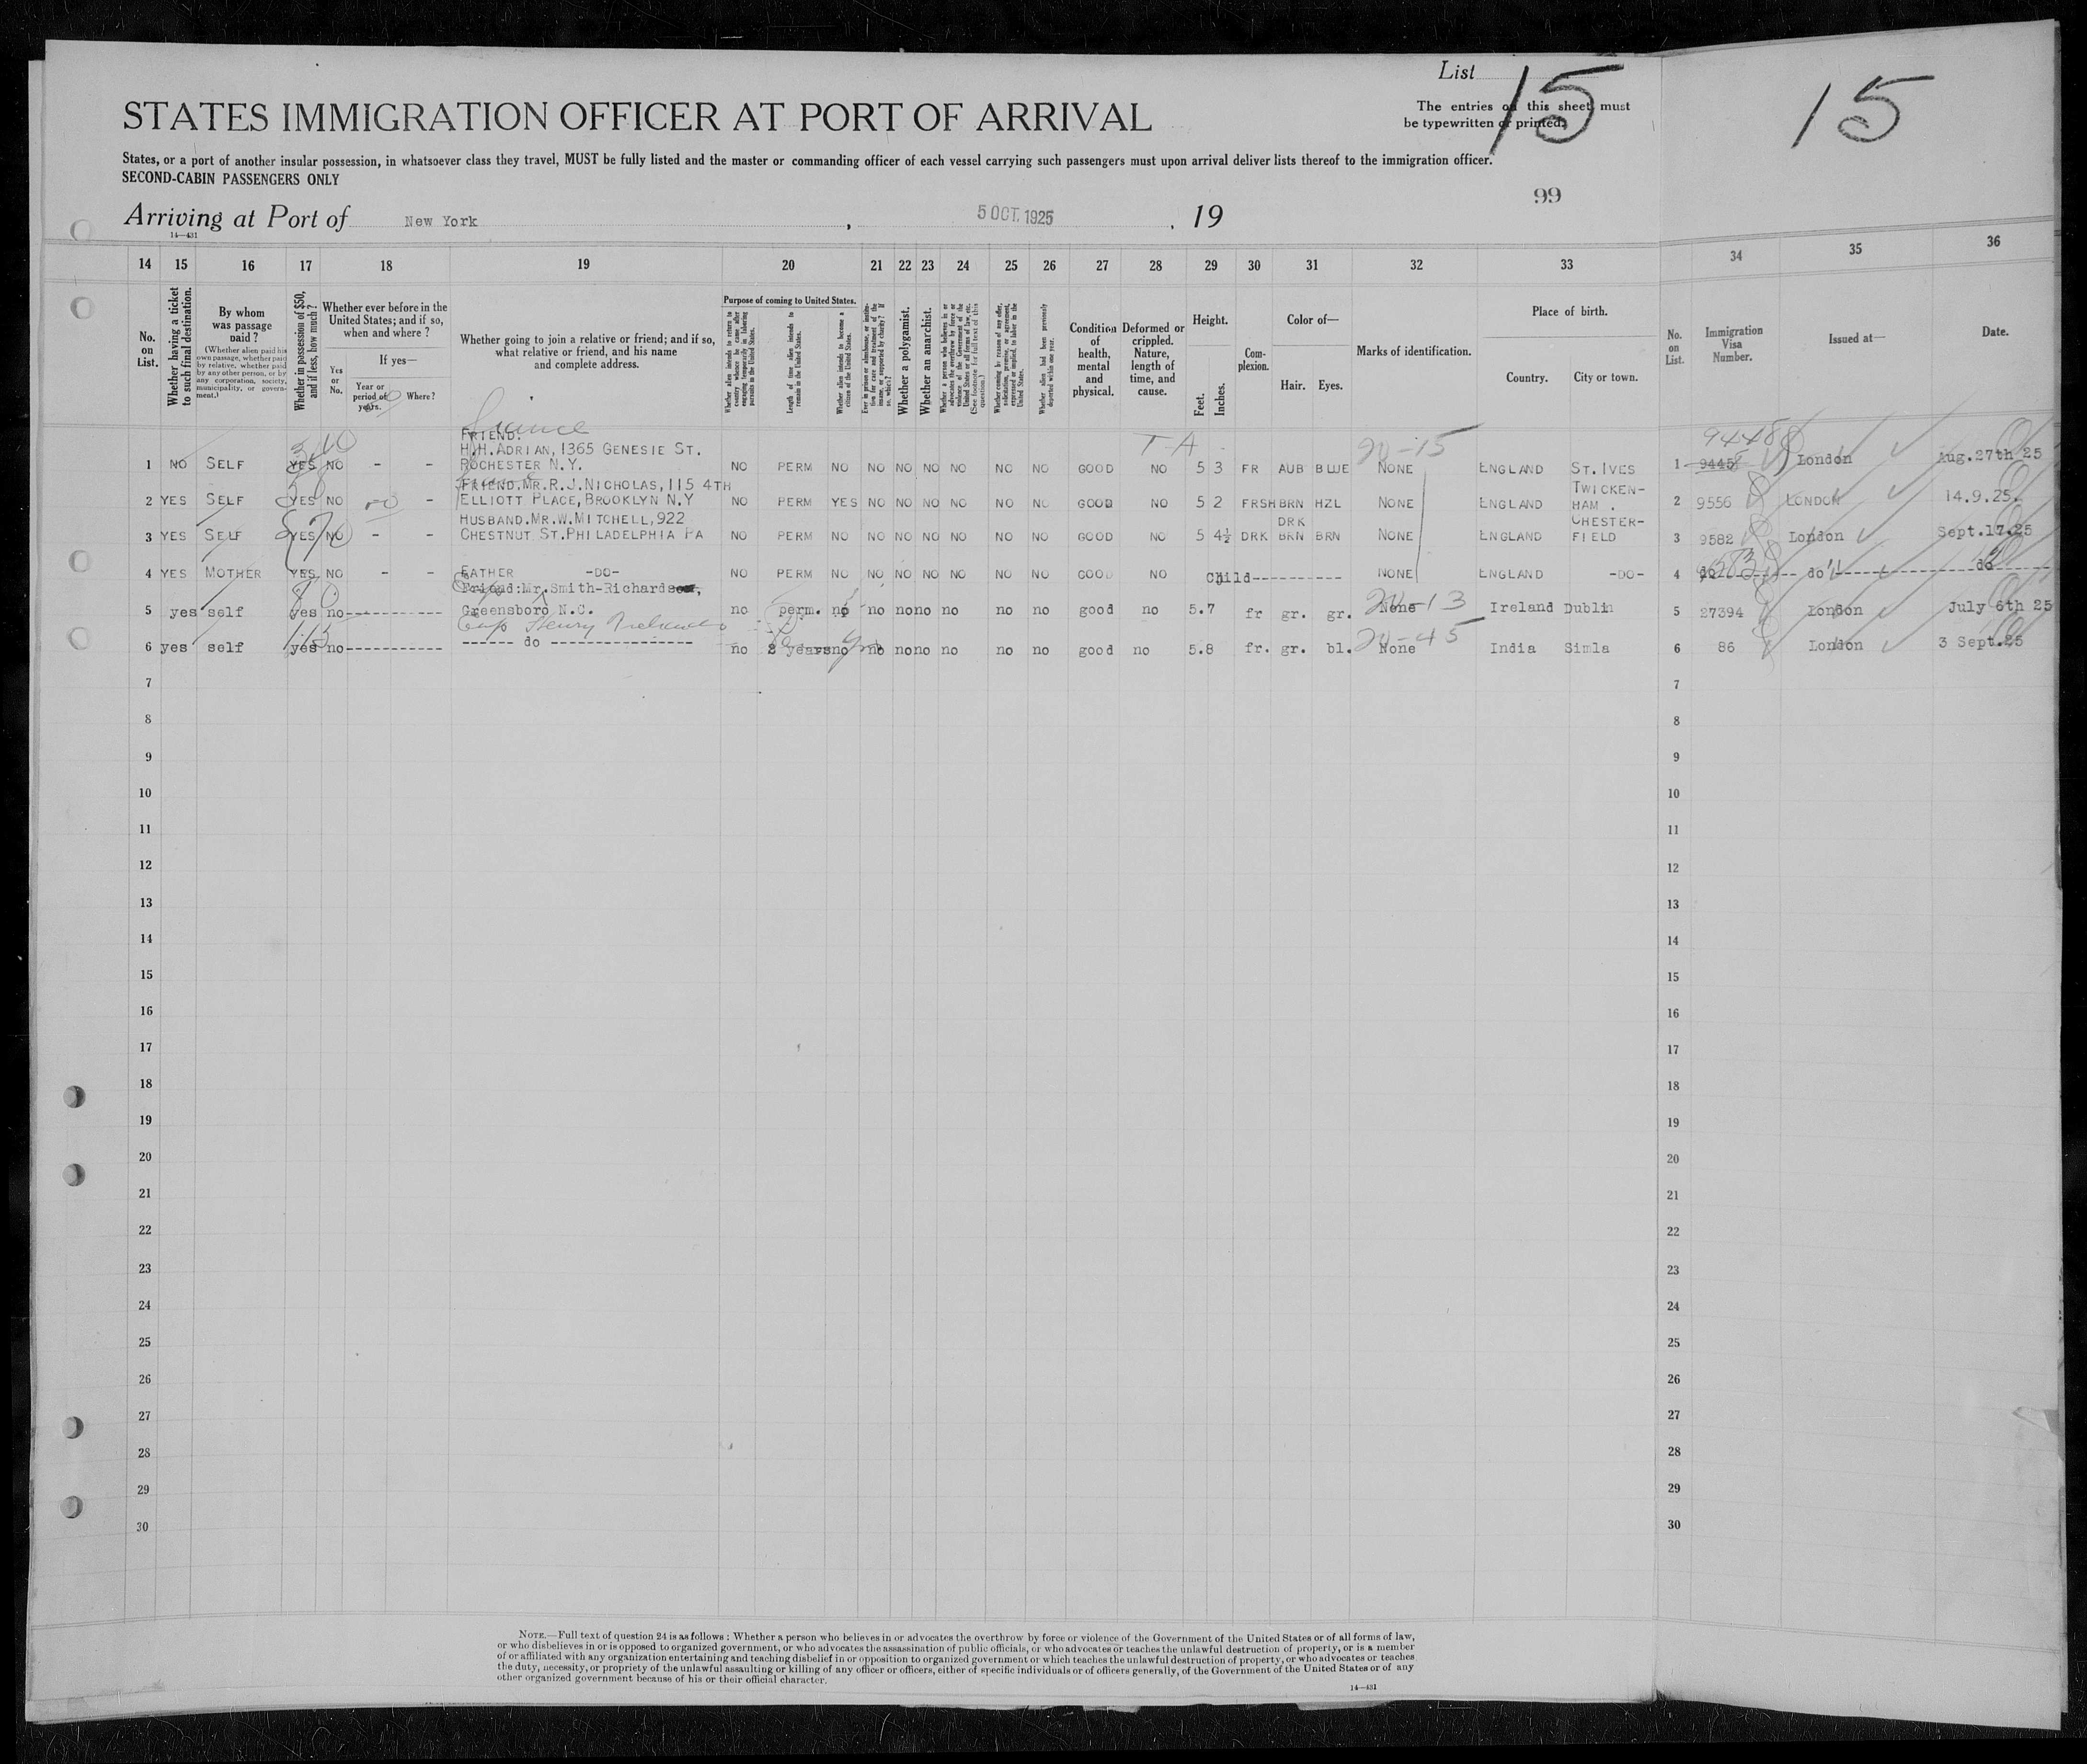 List 15
15
STATES IMMIGRATION OFFICER AT PORT OF ARRIVAL
The entries on this sheet must
be typewritten or printed.
States, or a port of another insular possession, in whatsoever class they travel, MUST be fully listed and the master or commanding officer of each vessel carrying such passengers must upon arrival deliver lists thereof to the immigration officer.
SECOND-CABIN PASSENGERS ONLY
99
Arriving at Port of New York, 5 OCT. 1925, 19
14—431
14 15 16 17 18 19 20 21 22 23 24 25 26 27 28 29 30 31 32 33 34 35 36
No. on List.
Whether having a ticket to such final destination.
By whom was passage paid?
(Whether alien paid his own passage, whether paid by relative, whether paid by any other person, or by any corporation, society, municipality, or government.)
Whether in possession of $50, and if less, how much?
Whether ever before in the United States; and if so, when and where?
Yes or No.
If yes—
Year or period of years.
Where?
Whether going to join a relative or friend; and if so, what relative or friend, and his name and complete address.
Purpose of coming to United States.
Whether alien intends to return to country whence he came after engaging temporarily in laboring pursuits in the United States.
Length of time alien intends to remain in the United States.
Whether alien intends to become a citizen of the United States.
Ever in prison or almshouse, or institution for care and treatment of the insane, or supported by charity? If so, which?
Whether a polygamist.
Whether an anarchist.
Whether a person who believes in or advocates the overthrow by force or violence of the Government of the United States or all forms of law, etc. (See footnote for full text of this question.)
Whether coming by reason of any offer, solicitation, promise, or agreement, expressed or implied, to labor in the United States.
Whether alien had been previously deported within one year.
Condition of health, mental and physical.
Deformed or crippled. Nature, length of time, and cause.
Height.
Feet. Inches.
Complexion.
Color of—
Hair. Eyes.
Marks of identification.
Place of birth.
Country. City or town.
No. on List.
Immigration Visa Number.
Issued at—
Date.
FRIEND. T-A 20-15 9448
H.H.ADRIAN,1365 GENESIE ST.
1 NO SELF YES NO - - ROCHESTER N.Y. NO PERM NO NO NO NO NO NO NO GOOD NO 5 3 FR AUB BLUE NONE ENGLAND ST.IVES 1 9445 London Aug.27th 25
FRIEND.MR.R.J.NICHOLAS,115 4TH TWICKEN-
2 YES SELF YES NO - ELLIOTT PLACE,BROOKLYN N.Y NO PERM YES NO NO NO NO NO NO GOOD NO 5 2 FRSH BRN HZL NONE ENGLAND HAM . 2 9556 LONDON 14.9.25.
HUSBAND.MR.W.MITCHELL,922 DRK CHESTER-
3 YES SELF YES NO - - CHESTNUT ST.PHILADELPHIA PA NO PERM NO NO NO NO NO NO NO GOOD NO 5 4½ DRK BRN BRN NONE ENGLAND FIELD 3 9582 London Sept.17.25
4 YES MOTHER YES NO - - FATHER -DO- NO PERM NO NO NO NO NO NO NO GOOD NO Child---------- NONE ENGLAND -DO- 4 do------ do ------ do
Friend:Mr.Smith-Richardson, 20-13
5 yes self yes no---------- Greensboro N.C. no perm. no no no no no no no good no 5.7 fr gr. gr. None Ireland Dublin 5 27394 London July 6th 25
Henry 20-45
6 yes self yes no---------- ------ do ----------------- no 2 years no no no no no no no good no 5.8 fr. gr. bl. None India Simla 6 86 London 3 Sept.25
7 7
8 8
9 9
10 10
11 11
12 12
13 13
14 14
15 15
16 16
17 17
18 18
19 19
20 20
21 21
22 22
23 23
24 24
25 25
26 26
27 27
28 28
29 29
30 30
NOTE.—Full text of question 24 is as follows: Whether a person who believes in or advocates the overthrow by force or violence of the Government of the United States or of all forms of law,
or who disbelieves in or is opposed to organized government, or who advocates the assassination of public officials, or who advocates or teaches the unlawful destruction of property, or is a member
of or affiliated with any organization entertaining and teaching disbelief in or opposition to organized government or which teaches the unlawful destruction of property, or who advocates or teaches
the duty, necessity, or propriety of the unlawful assaulting or killing of any officer or officers, either of specific individuals or of officers generally, of the Government of the United States or of any
other organized government because of his or their official character.
14—431